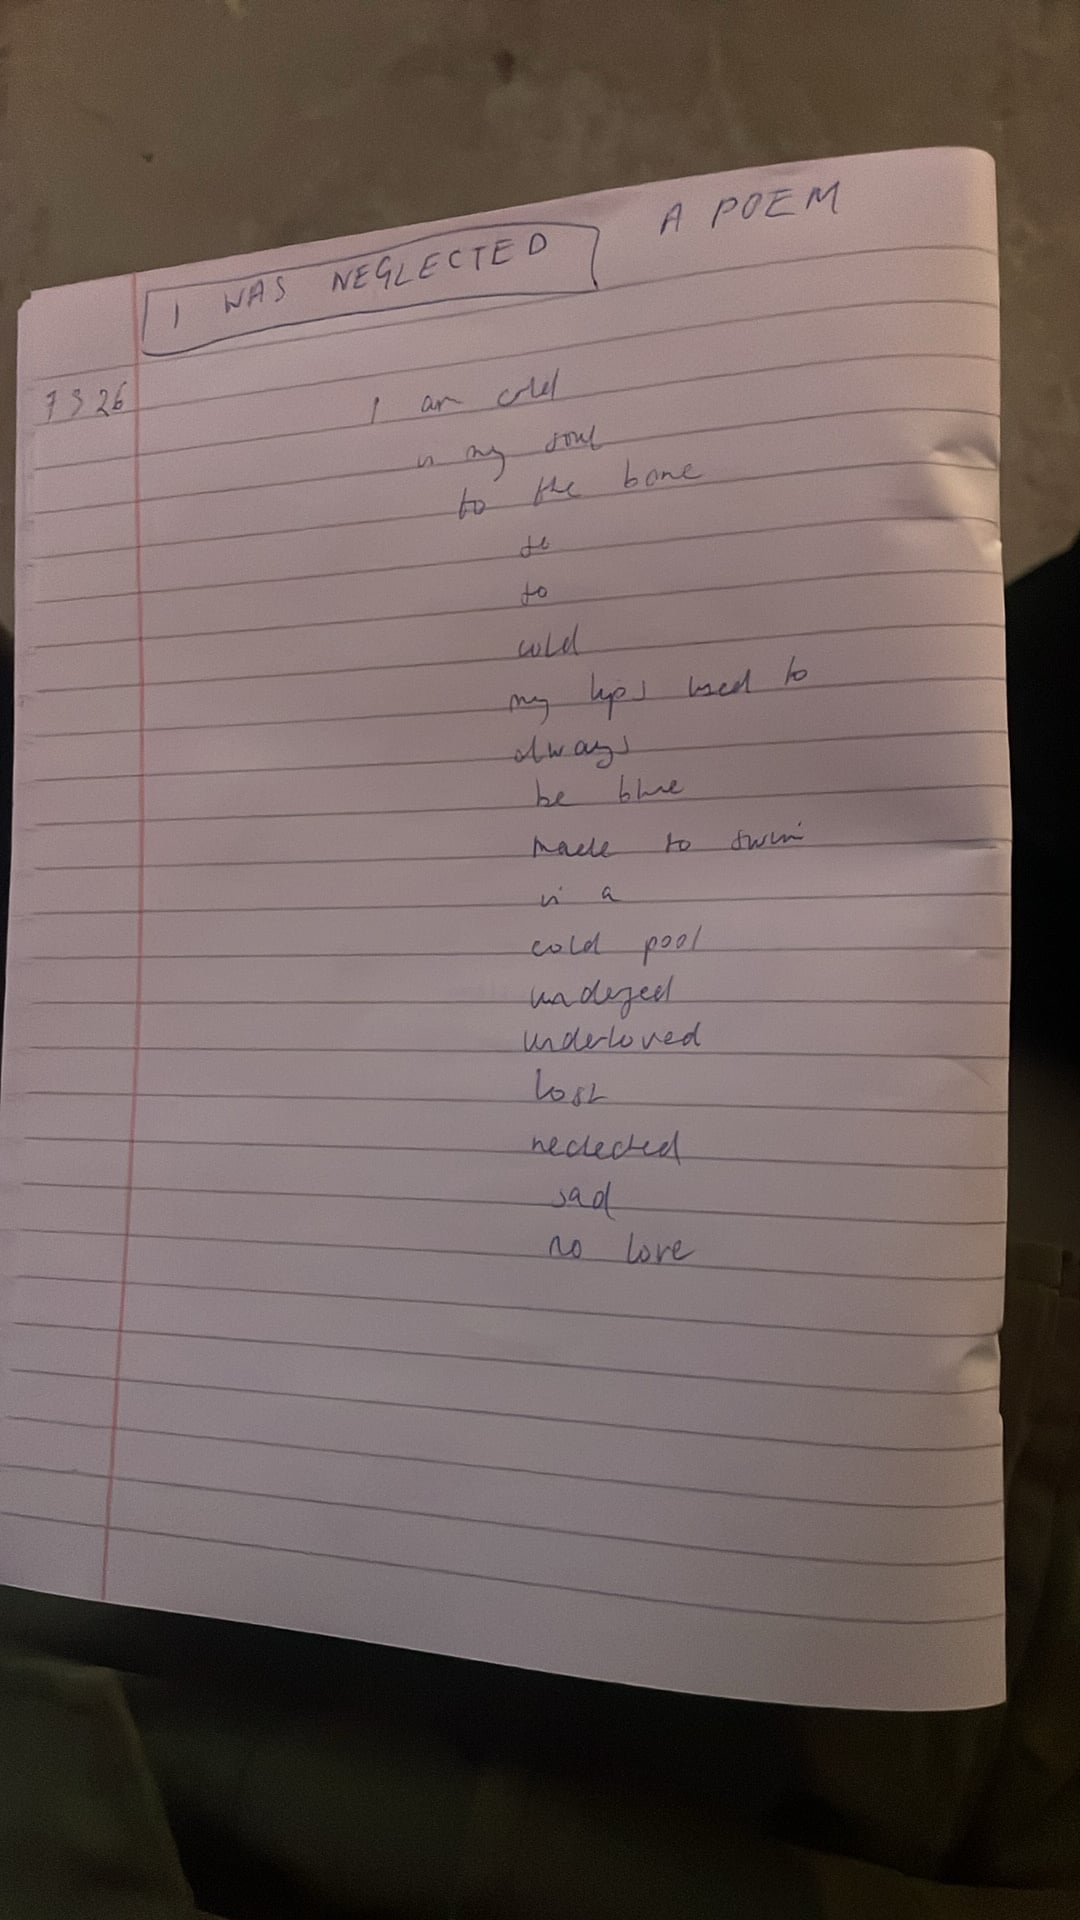 I WAS NEGLECTED A POEM
7 3 26
I am cold
in my soul
to the bone
so
to
cold
my lips used to
always
be blue
made to swim
in a
cold pool
underloved
lost
neclected
sad
no love